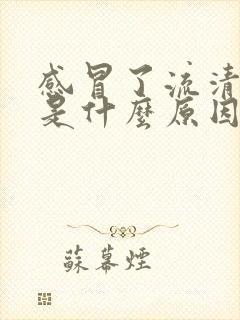 感冒了流清
是什麼原因
蘇幕煙